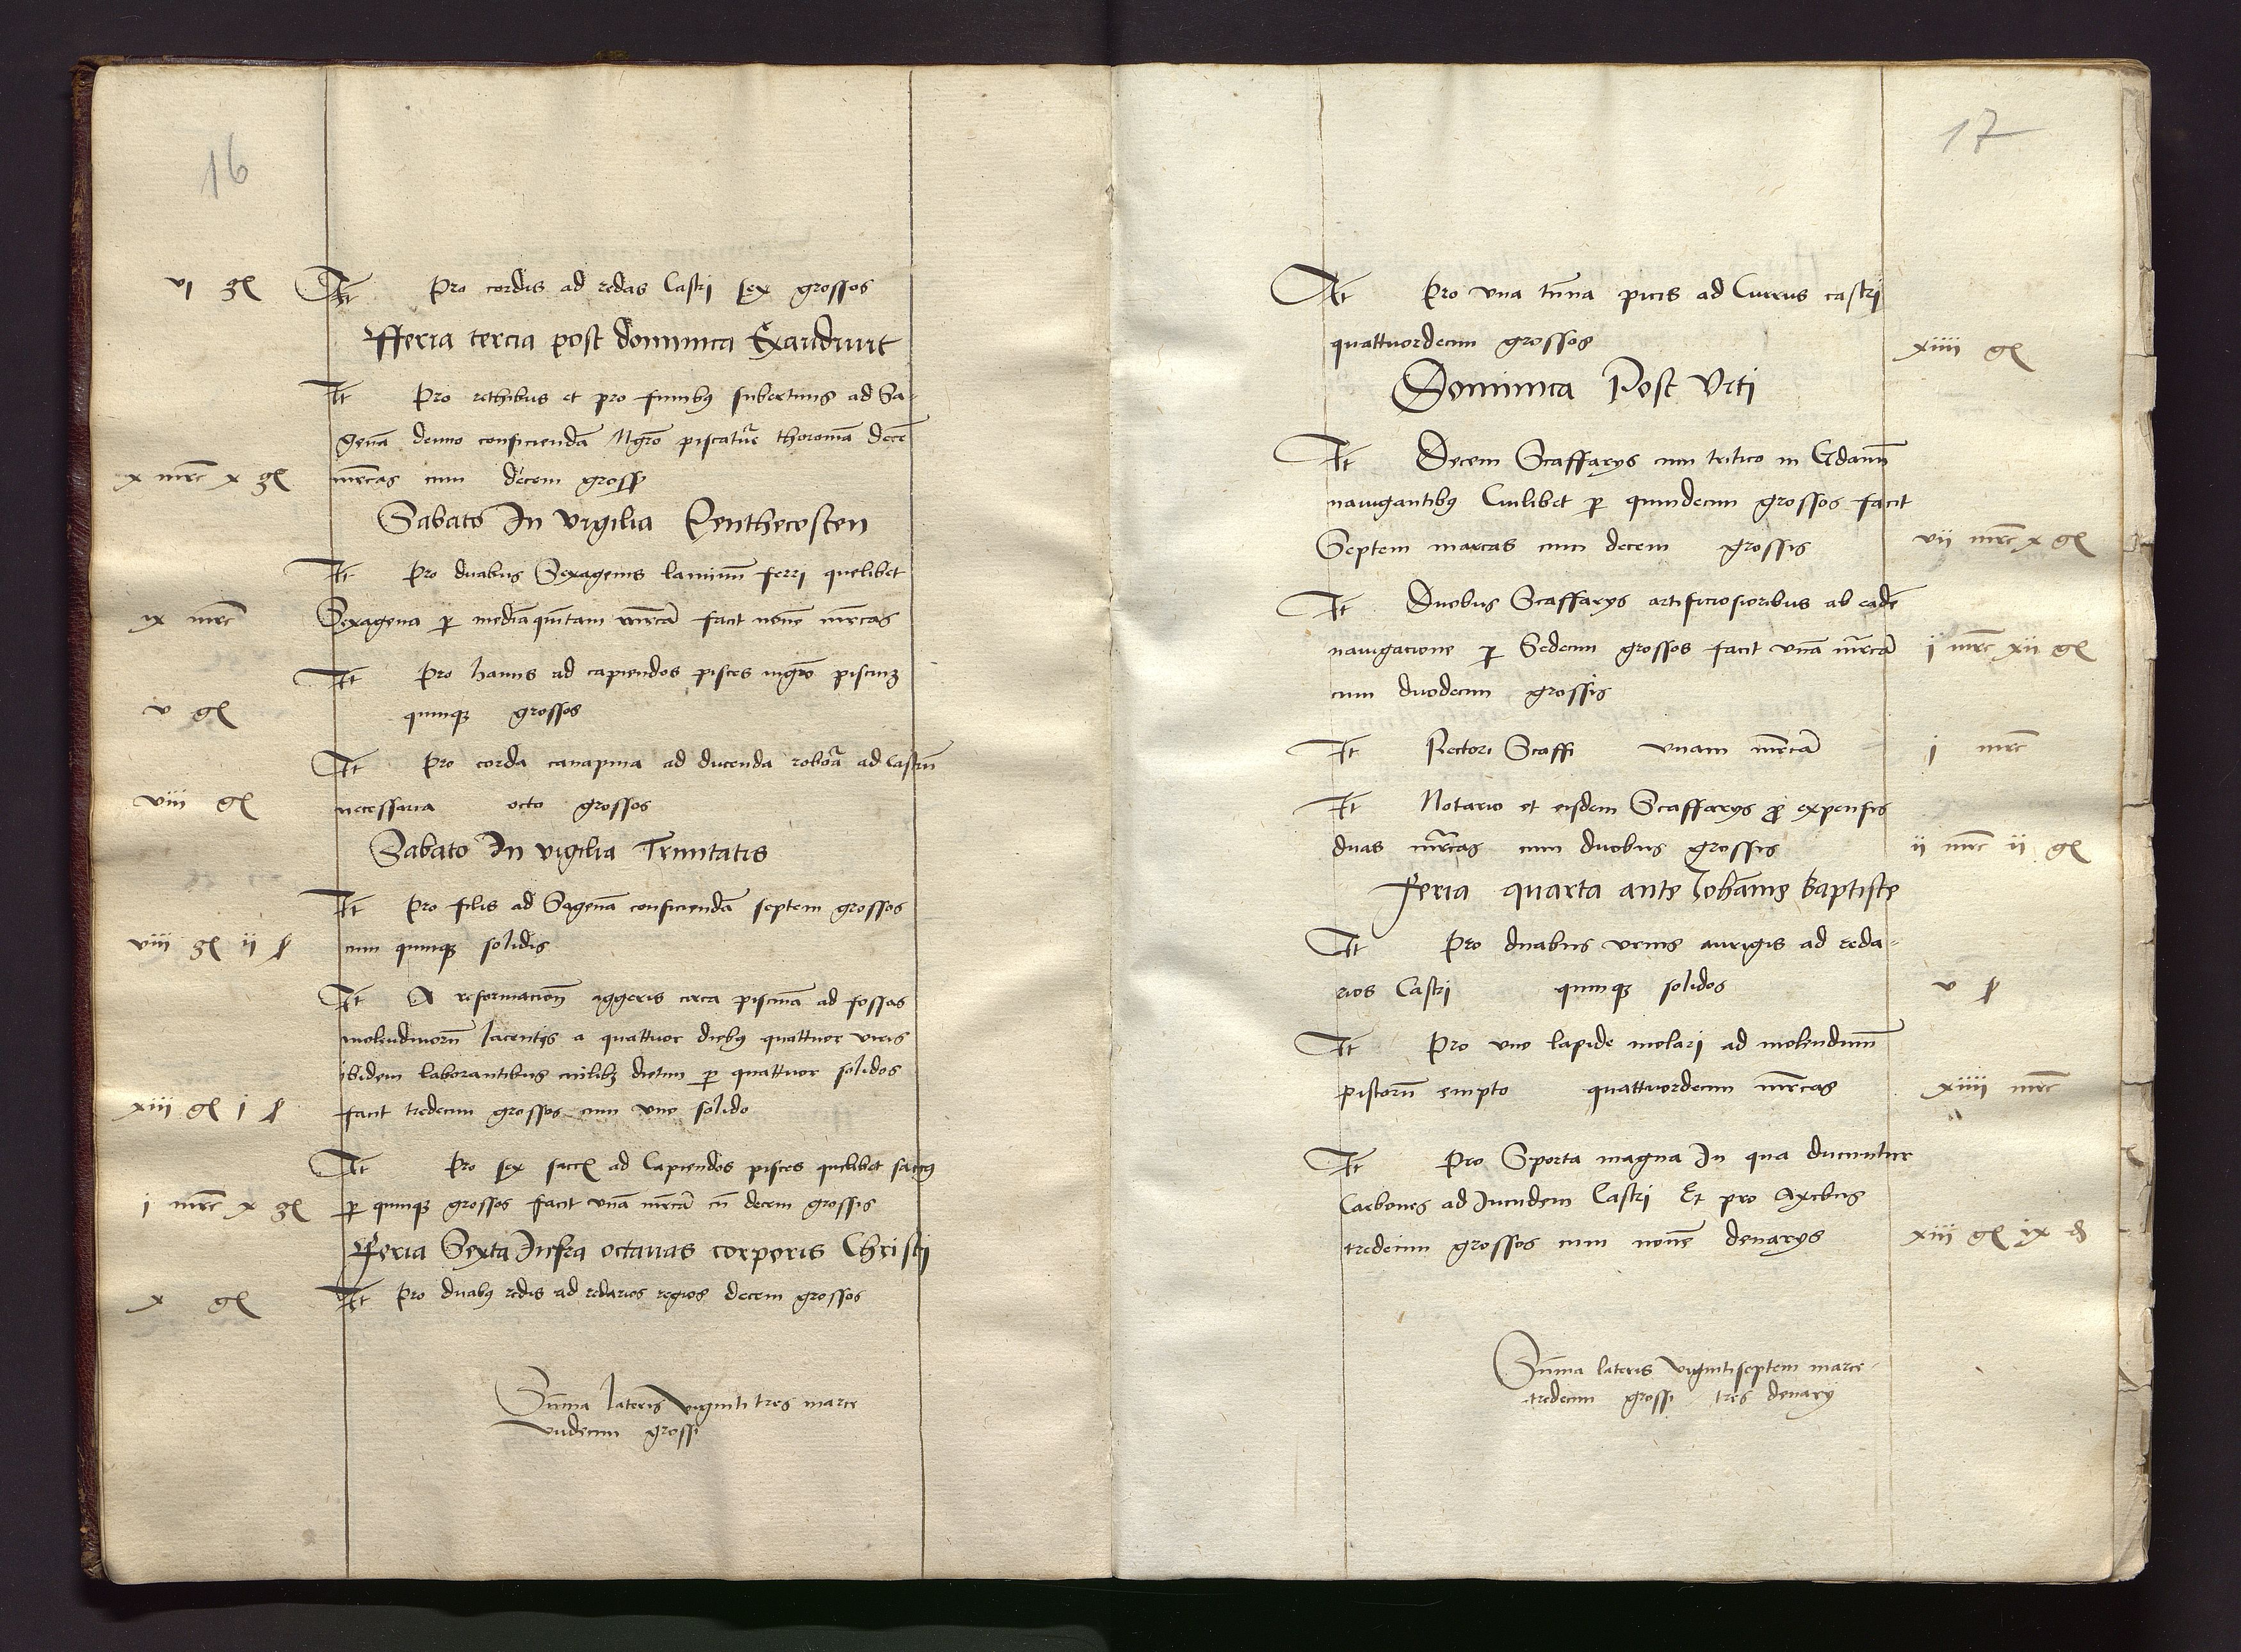 16
vj gl It Pro cordis ad redas Castri sex grossos
Fferia tercia post dominica Exaudiuit
It Pro rethibus et pro funibus suberinis ad Sa-
genā denuo conficiendā Mgro piscatur̄ thoromā decē
x mrc x gl mrcas cum decem gross
Sabato In vigilia Penthecosten
It Pro duabus Sexagenis laminū ferri quelibet
ix mrc Sexagena p mediā quītam mrcā facit nouē mrcas
It Pro hamis ad capiendos pisces mgro piscinȝ
v gl quinqȝ grossos
It Pro corda canapina ad ducenda robora ad Castrū
viii gl necessaria octo grossos
Sabato In vigilia Trinitatis
It Pro filis ad Sagenā conficiendā septem grossos
viii gl ij ß cum quinqȝ solidis
It A reformacion aggeris circa piscinā ad fossas
molendinorū Iacentis a quattuor diebȝ quattuor viris
ibidem laborantibus cuilibȝ dietim p quattuor solidos
xiii gl j ß facit tredecim grossos cum vno solido
It Pro sex saccl ad Capiendos pisces quelibet saccȝ
j mrc x gl p quinqȝ grossos facit vnā mrcā cū decem grossis
Feria Sexta Infra octauas corporis Christi
x gl It Pro duabȝ redis ad redarios regios decem grossos
Sūma lateris viginti tres marce
vndecim grossi
17
It Pro vna tūna picis ad Currus castrj
quattuordecim grossos xiiii gl
Dominica Post Viti
It Decem Scaffarys cum tritico in Gdanū
nauigantibȝ Cuilibet p quindecim grossos facit
Septem marcas cum decem grossis vii mrc x gl
It Duobus Scaffarys artificiosioribus ab eadē
nauigacione p Sedecim grossos facit vnā mrcā j mrc xii gl
cum duodecim grossis
It Rectori Scaffi vnam mrcā j mrc
It Notario et eisdem Scaffarys p expensis
duas mrcas cum duobus grossis ij mrc ij gl
Feria quarta ante Iohānis Baptiste
It Pro duabus vrnis aurigis ad reda-
rios Castri quinqȝ solidos v ß
It Pro vno lapide molari ad molendinū
pistorū empto quattuordecim mrcas xiiii mrc
It Pro Sporta magna In qua ducuntur
Carbones ad Incudem Castri Et pro Axibus
tredecim grossos cum nouē denarys xiii gl ix d
Sūma lateris vigintiseptem marce
tredecim grossi tres denary